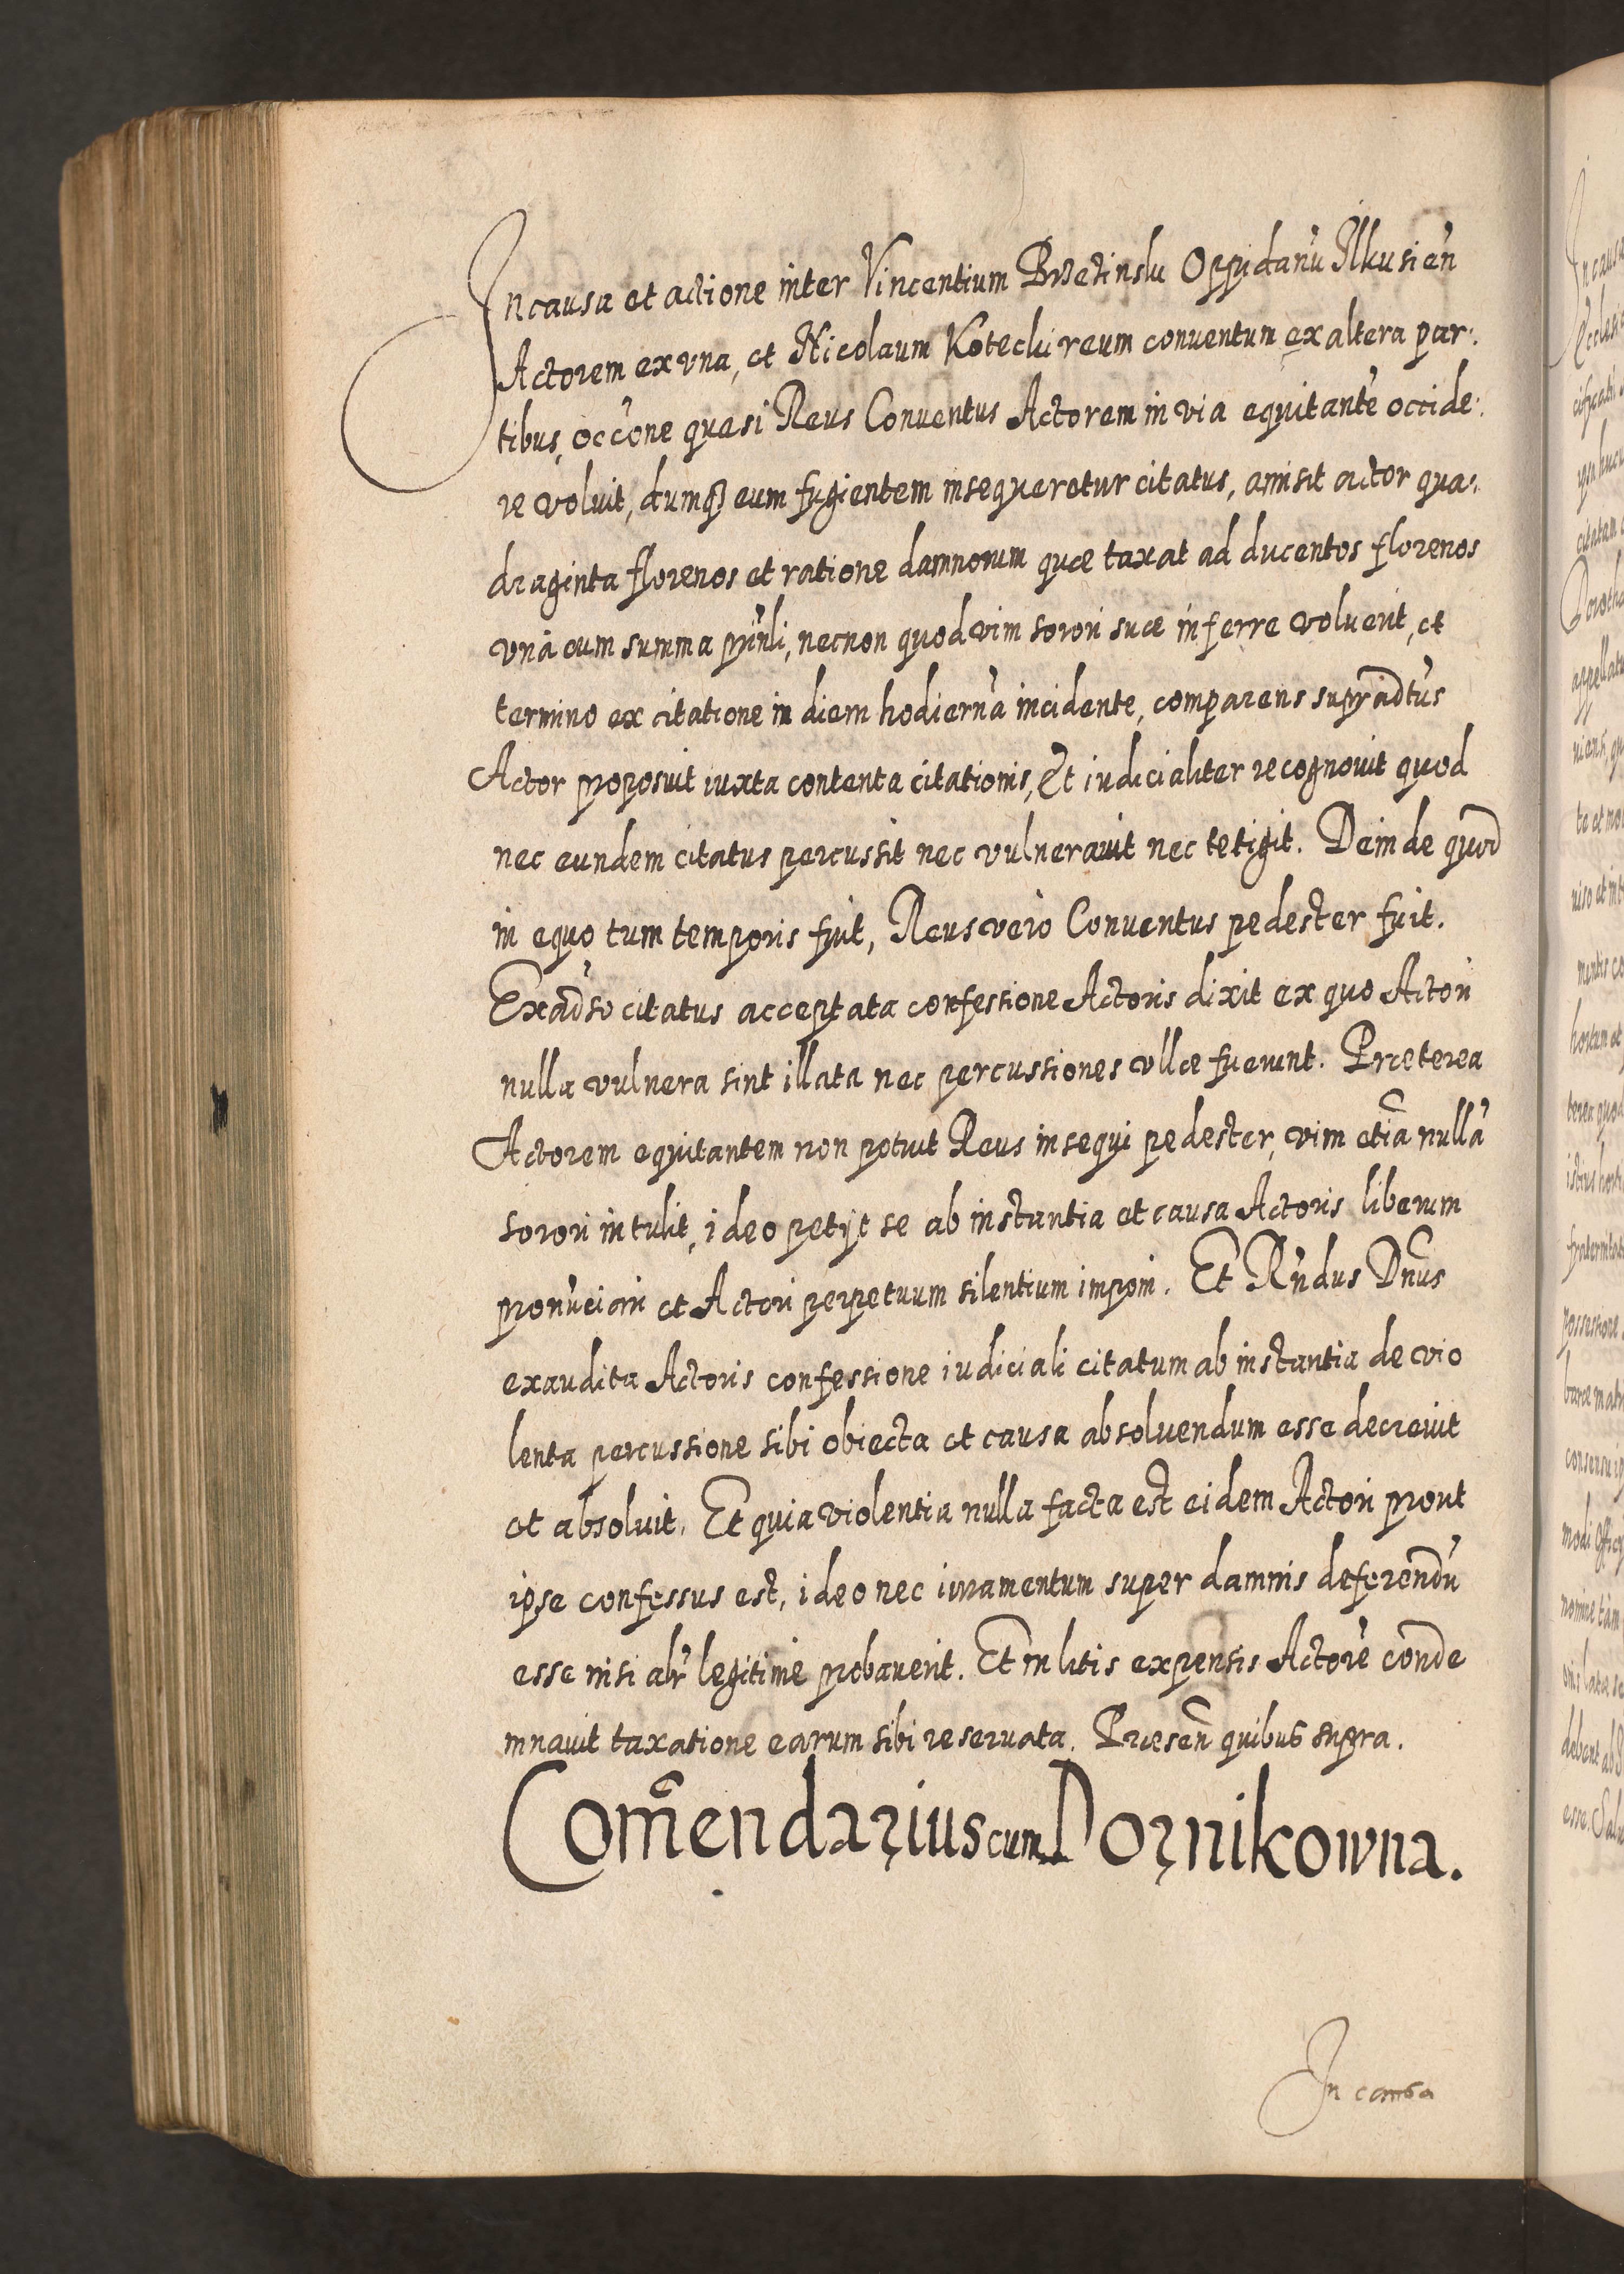 In causa et actione inter Vincentium Brzezinski Oppidanũ Ilkusieñ
Actorem ex vna, et Nicolaum Kotecki reum conuentum ex altera par:
tibus, occõne quasi Reus Conuentus Actorem in via equitantẽ occide:
re voluit, dumq3 eum fugientem insequeretur citatus, amisit actor qua:
draginta florenos et ratione damnorum quæ taxat ad ducentos florenos
vnà cum summa prinli, necnon quod vim sorori suæ inferre voluerit, et
termino ex citatione in diem hodiernã incidente, comparens supradtus
Actor proposuit iuxta contenta citationis, Et iudicialiter recognouit quod
nec eundem citatus percussit nec vulnerauit nec tetigit. Deinde quod
in equo tum temporis fuit, Reus vero Conuentus pedester fuit.
Exadso citatus acceptata confessione Actoris dixit ex quo Actori
nulla vulnera sint illata nec percussiones vllæ fuerunt. Præterea
Actorem equitantem non potuit Reus insequi pedester, vim etiã nullã
sorori intulit, ideo petijt se ab instantia et causa Actoris liberum
pronũciari et Actori perpetuum silentium imponi. Et Rñdus Dñus
exaudita Actoris confessione iudiciali citatum ab instantia de vio
lenta percussione sibi obiecta et causa absoluendum esse decreuit
et absoluit. Et quia violentia nulla facta est eidem Actori prout
ipse confessus est, ideo nec iuramentum super damnis deferendũ
esse nisi alr legitime probauerit. Et in litis expensis Actorẽ conde
mnauit taxatione earum sibi reseruata. Præsen quibus supra.
Com̃endarius cum Dornikowna.
In causa